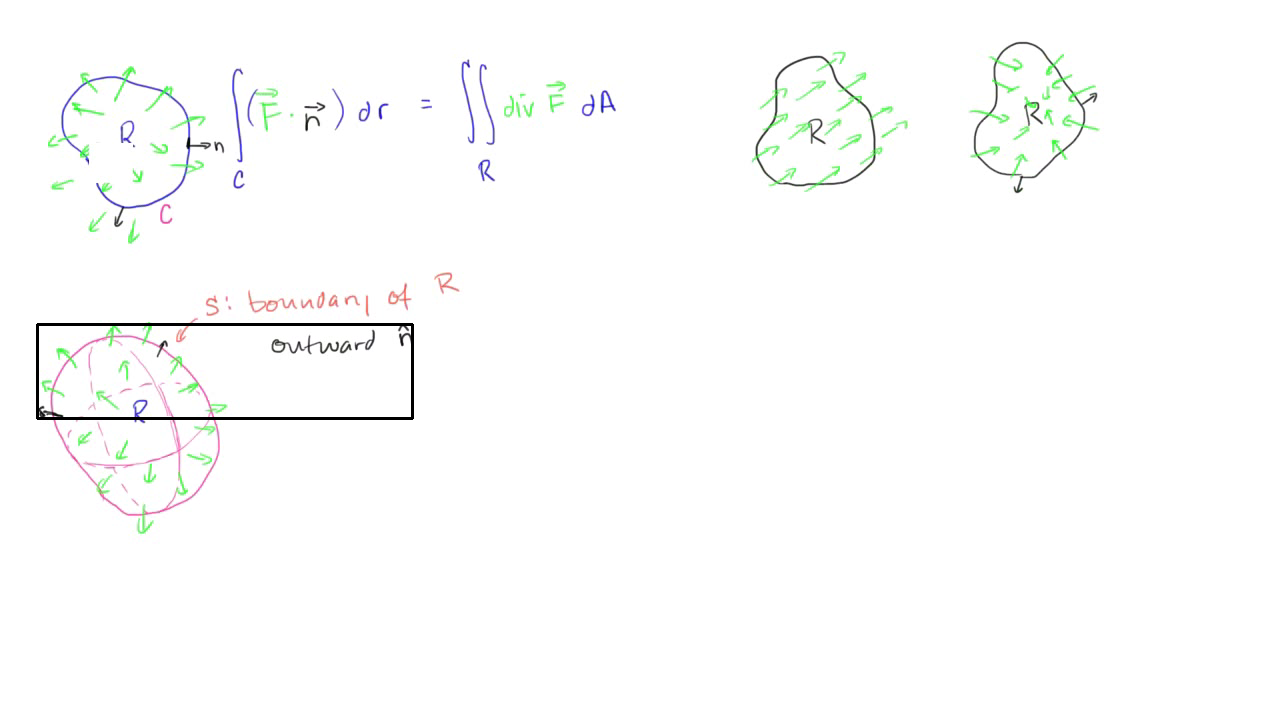 R. n C
∫_C (F⃗ · n⃗) dr = ∬_R div F⃗ dA
R
R
S: boundary of R
outward n̂
R